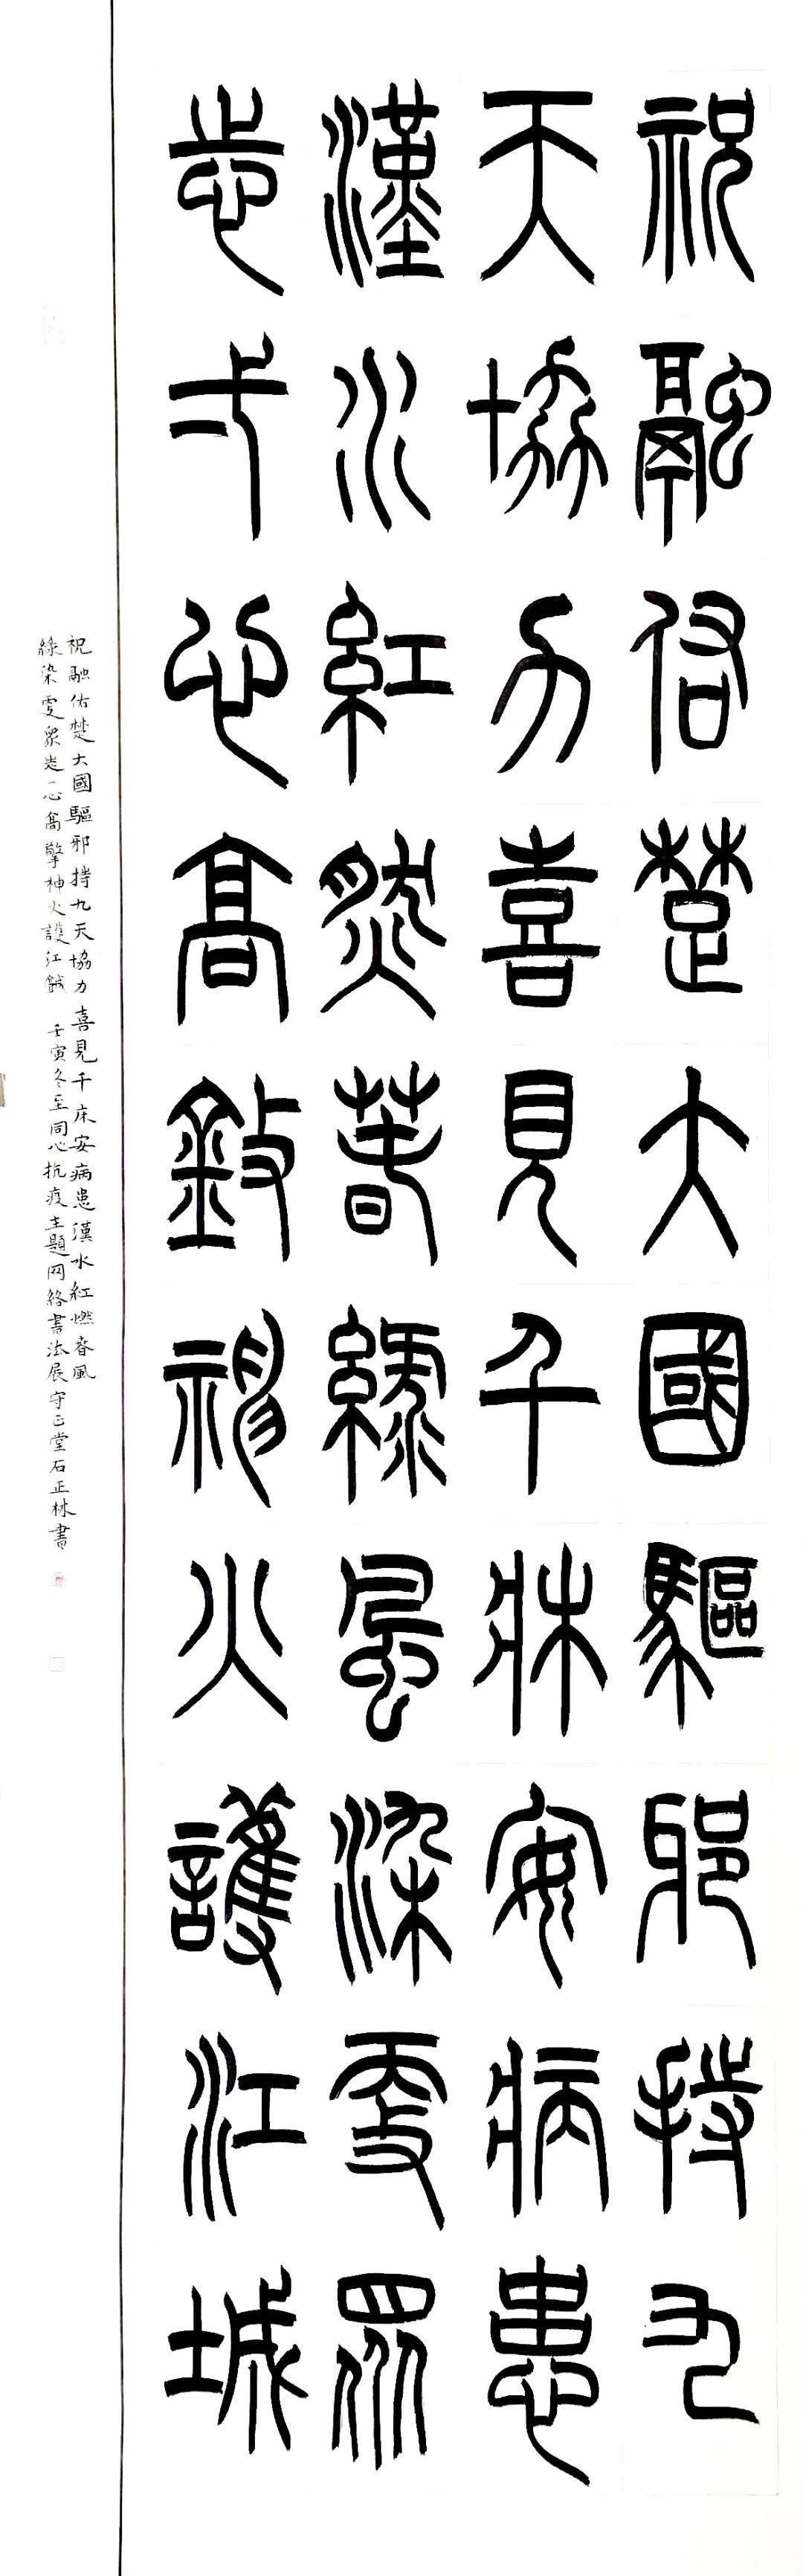 祝融佑楚大國驅邪持九
天協力喜見千牀安病患
漢水紅然春綠風染雯眾
志弌心高神火護江城
祝融佑楚大國驅邪持九天協力喜見千床安病患漢水紅燃春風
綠染雯眾志一心高擎神火護江 壬寅冬至同心抗疫主題网絡書法展守正堂石正林書